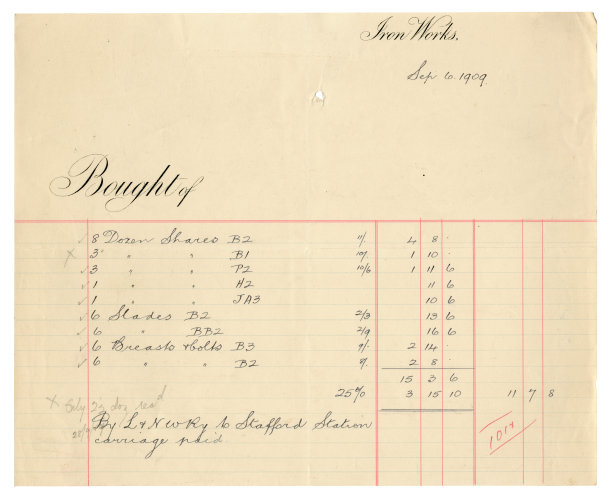 Iron Works.
Sep 6. 1909
Bought of
8 Dozen Shares B2 11/- 4 8 -
3 " " B1 10/- 1 10 -
3 " " P2 10/6 1 11 6
1 " " H2 11 6
1 " " JA3 10 6
6 Slades B2 2/3 13 6
6 " BB2 2/9 16 6
6 Breasts & bolts B3 9/- 2 14
6 " " B2 8/- 2 8 -
15 3 6
25% 3 15 10 11 7 8
X Only 2½ doz recd
By L & N W Ry to Stafford Station
carriage paid